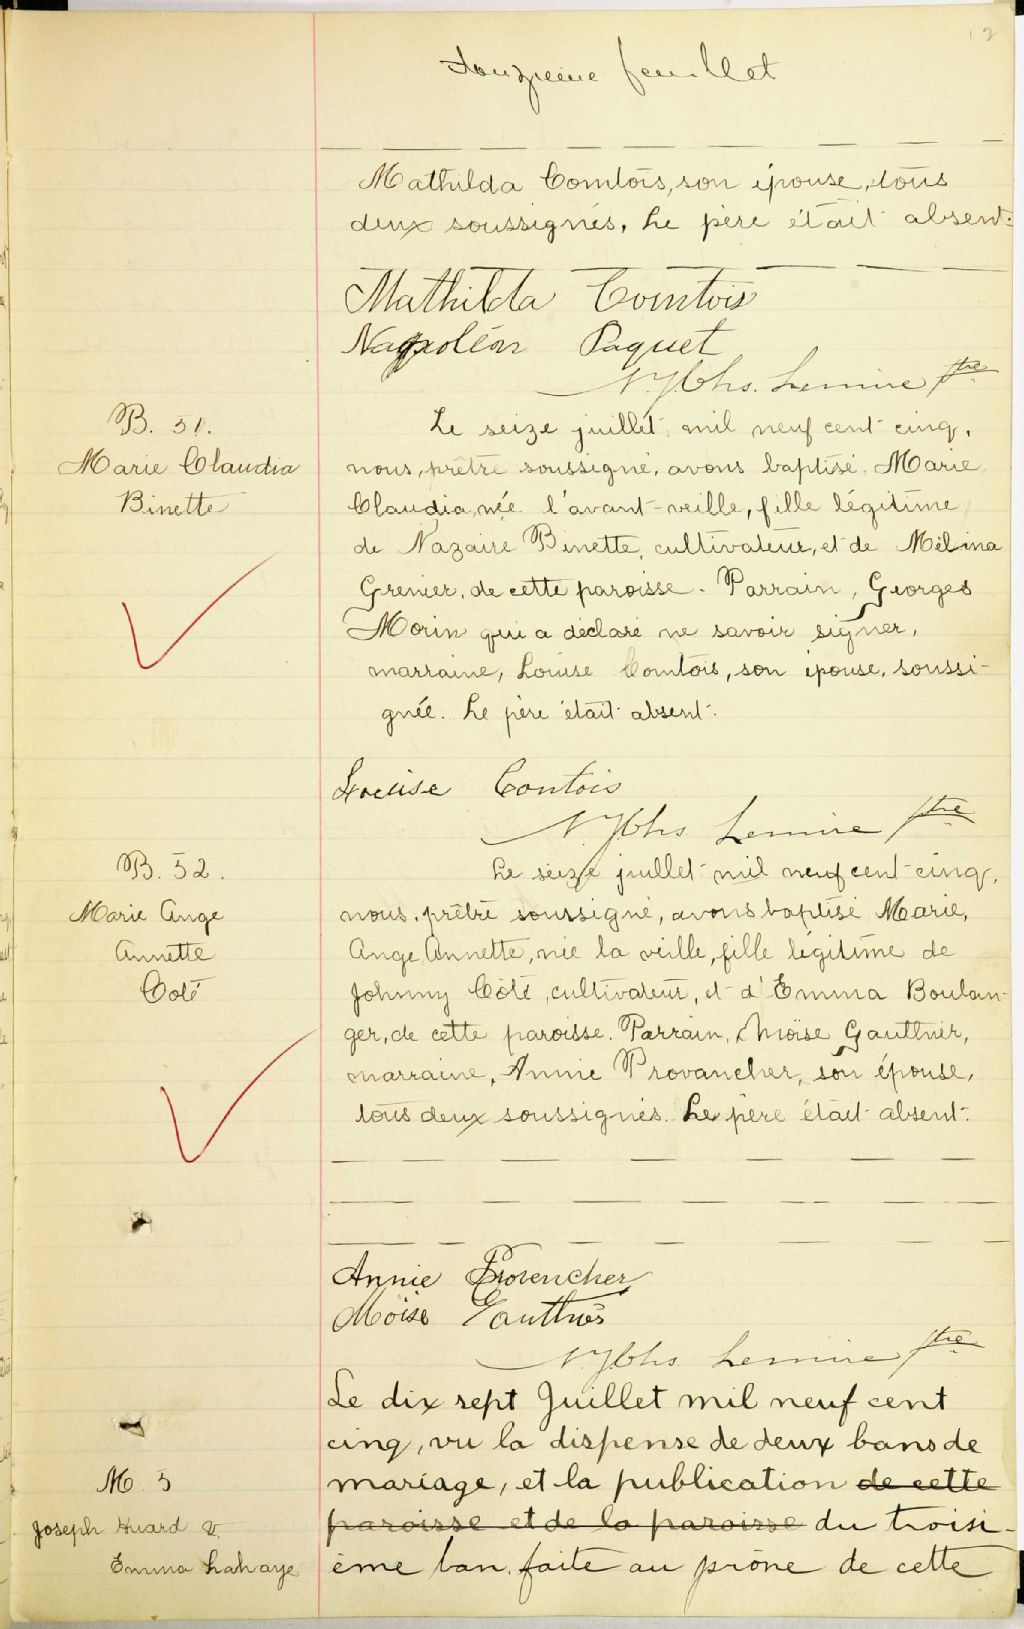 12
Douzième feuillet
Mathilda Comtois, son épouse, tous
deux soussignés. Le père était absent.
Mathilda Comtois
Napoléon Paquet
Lemire Ptre
B. 51.
Marie Claudia
Binette
Le seize juillet mil neuf cent cinq,
nous, prêtre soussigné, avons baptisé Marie
Claudia, née l'avant-veille, fille légitime
de Nazaire Binette, cultivateur, et de Mélina
Grenier, de cette paroisse. Parrain, Georges
Morin qui a déclaré ne savoir signer,
marraine, Louise Comtois, son épouse, soussi-
gnée. Le père était absent.
Louise Contois
Lemire Ptre
B. 52.
Marie Ange
Annette
Coté
Le seize juillet mil neuf cent cinq,
nous, prêtre soussigné, avons baptisé Marie,
Ange Annette, née la veille, fille légitime de
Johnny Côté, cultivateur, et d'Emma Boulan-
ger, de cette paroisse. Parrain, Moïse Gauthier,
marraine, Annie Provancher, son épouse,
tous deux soussignés. Le père était absent.
Annie Provencher
Moïse Gauthier
Lemire Ptre
M 5
Joseph Huard &
Emma Lahaye
Le dix sept Juillet mil neuf cent
cinq, vu la dispense de deux bans de
mariage, et la publication de cette
paroisse et de la paroisse du troisi-
ème ban faite au prône de cette